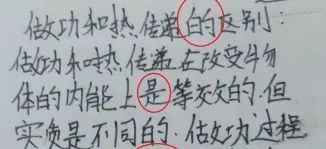 做功和热传递的区别:
做功和热传递在改变物
体的内能上是等效的.但
实质是不同的.做功过程